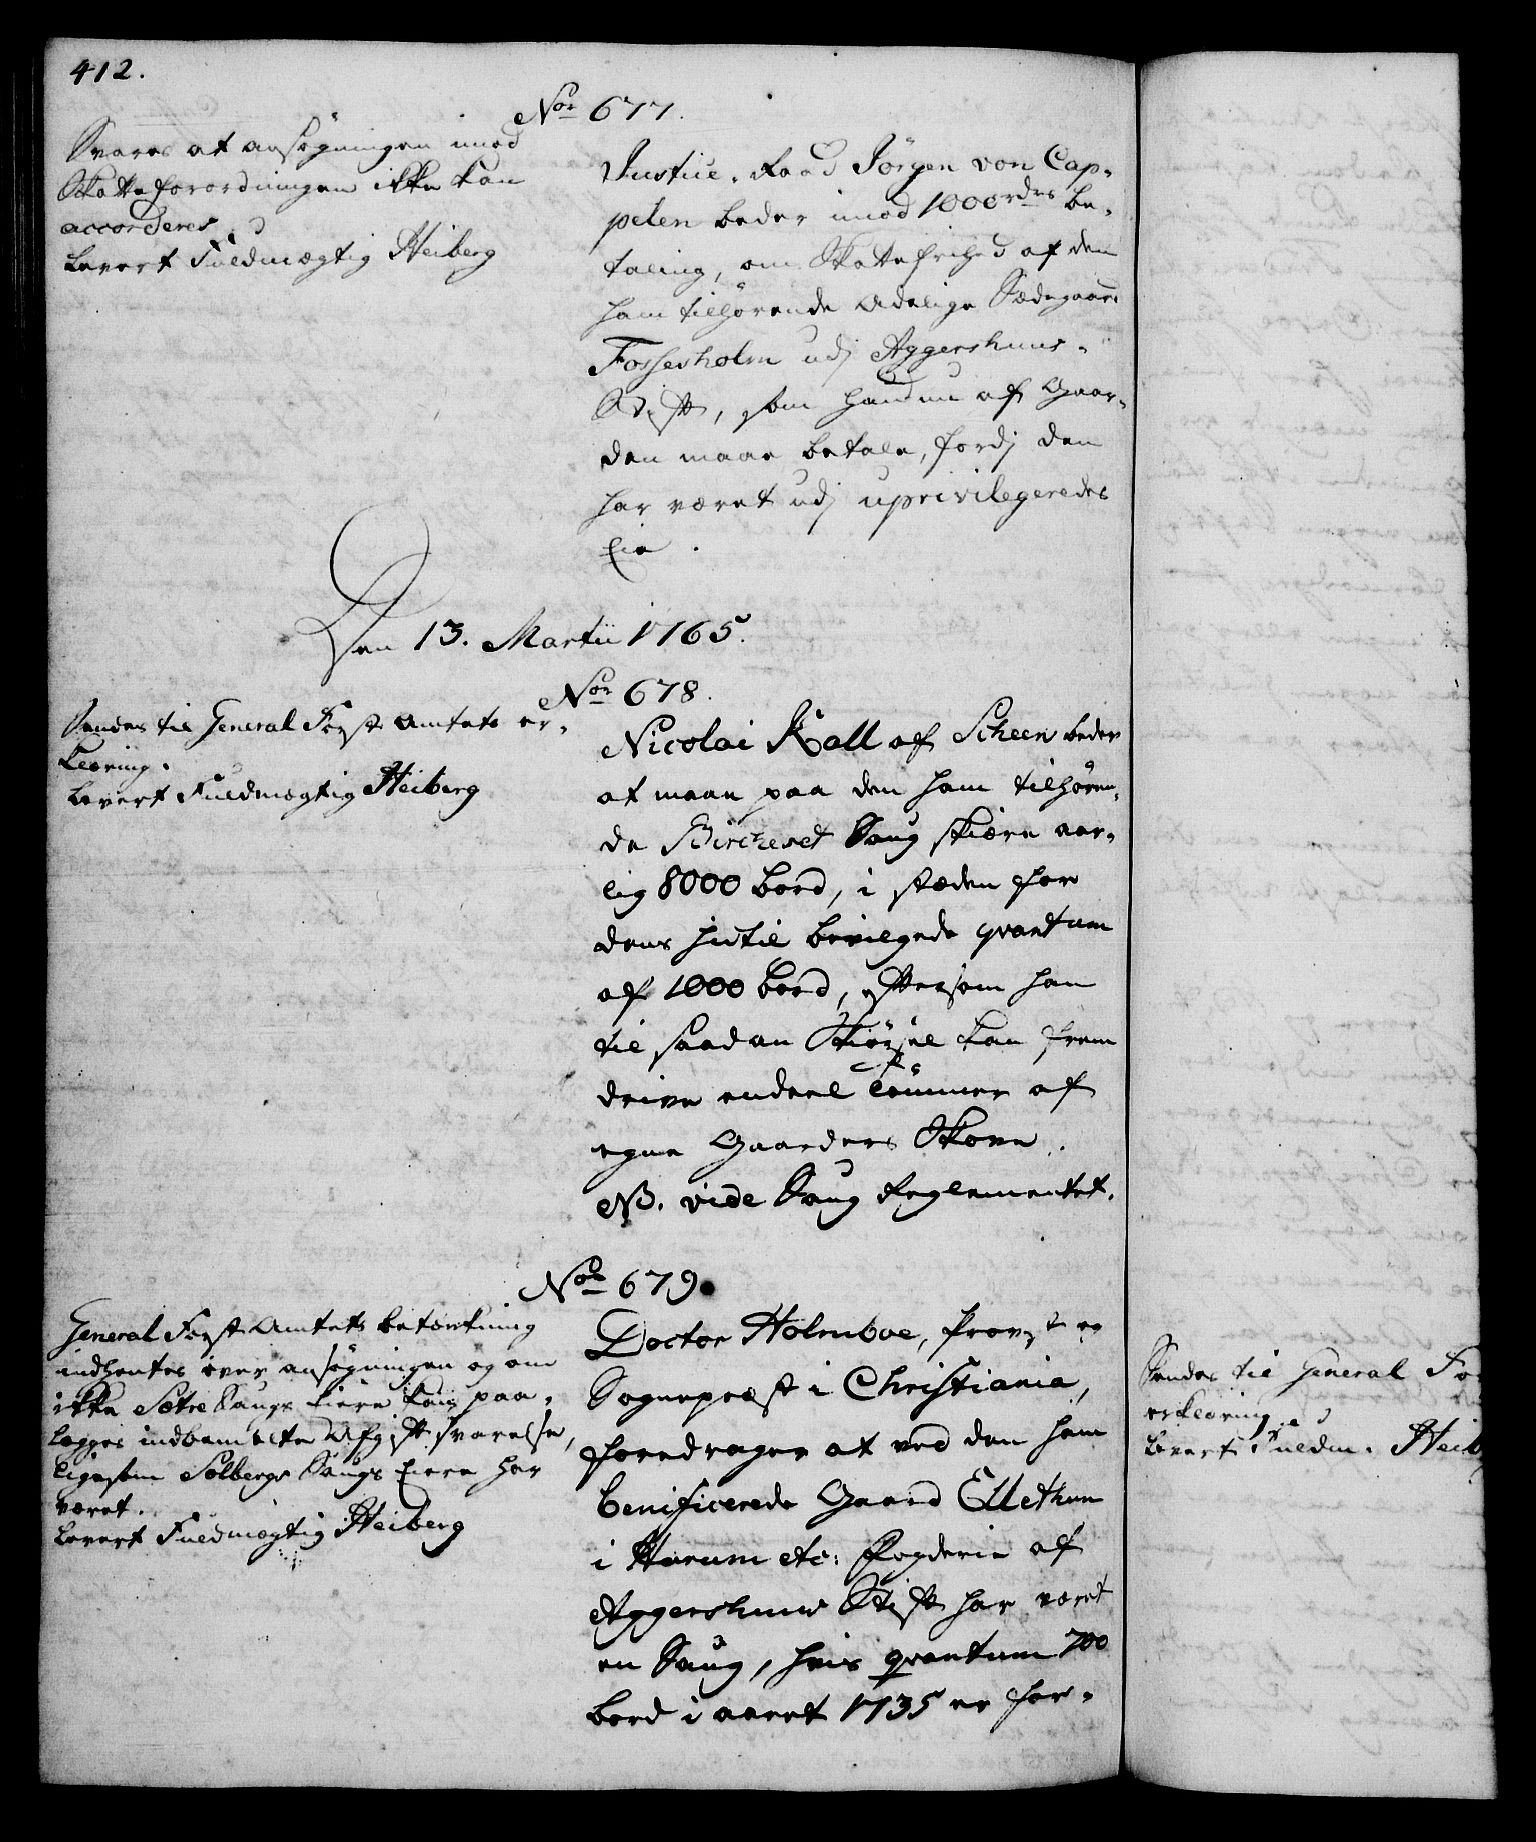 412.
Nor 677.
Svares at ansøgningen imod
Skatteforordningen ikke kan
accorderes.
Levert Fuldmægtig Heiberg
Justice-Raad Jörgen von Cap-
pelen beder imod 1000 rdrs be-
taling, om Skattefrihed af den
ham tilhørende Adelige Sædegaard
Fossesholm udj Aggershuus-
Stift, som hand nu af Gaar-
den maae betale, fordj den
har været udj uprivilegeredes
Eie.
Den 13. Martii 1765.
Nor 678.
Sendes til General Forst Amtets er-
klæring.
Levert Fuldmægtig Heiberg
Nicolai Kall af Scheen beder
at maae paa den ham tilhøren-
de Bircheset Saug skiære aar-
lig 8000 bord, i stæden for
dens hidtil bevilgede qvantum
af 1000 bord, eftersom han
til saadan Skiørsel kan frem
drive endeel Tømmer af
egne Gaarders Skove.
NB. vide Saug Reglementet.
Nor 679.
General Forst Amtets betænkning
indhentes over ansøgningen og om
ikke Sætre Saugs Eiere kan paa-
lægges indbemelte Afgift svarelse,
ligesom Solbergs Saugs Eiere har
været.
Levert Fuldmægtig Heiberg
Doctor Holmboe, Provst og
Sognepræst i Christiania,
foredrager at ved den ham
benificerede Gaard Ullethun
i Horum etc: Fogderie af
Aggershuus Stift har været
en Saug, hvis qvantum 700
bord i aaret 1735 er for-
Sendes til General For
erklæring.
Levert Fuldm. Heib